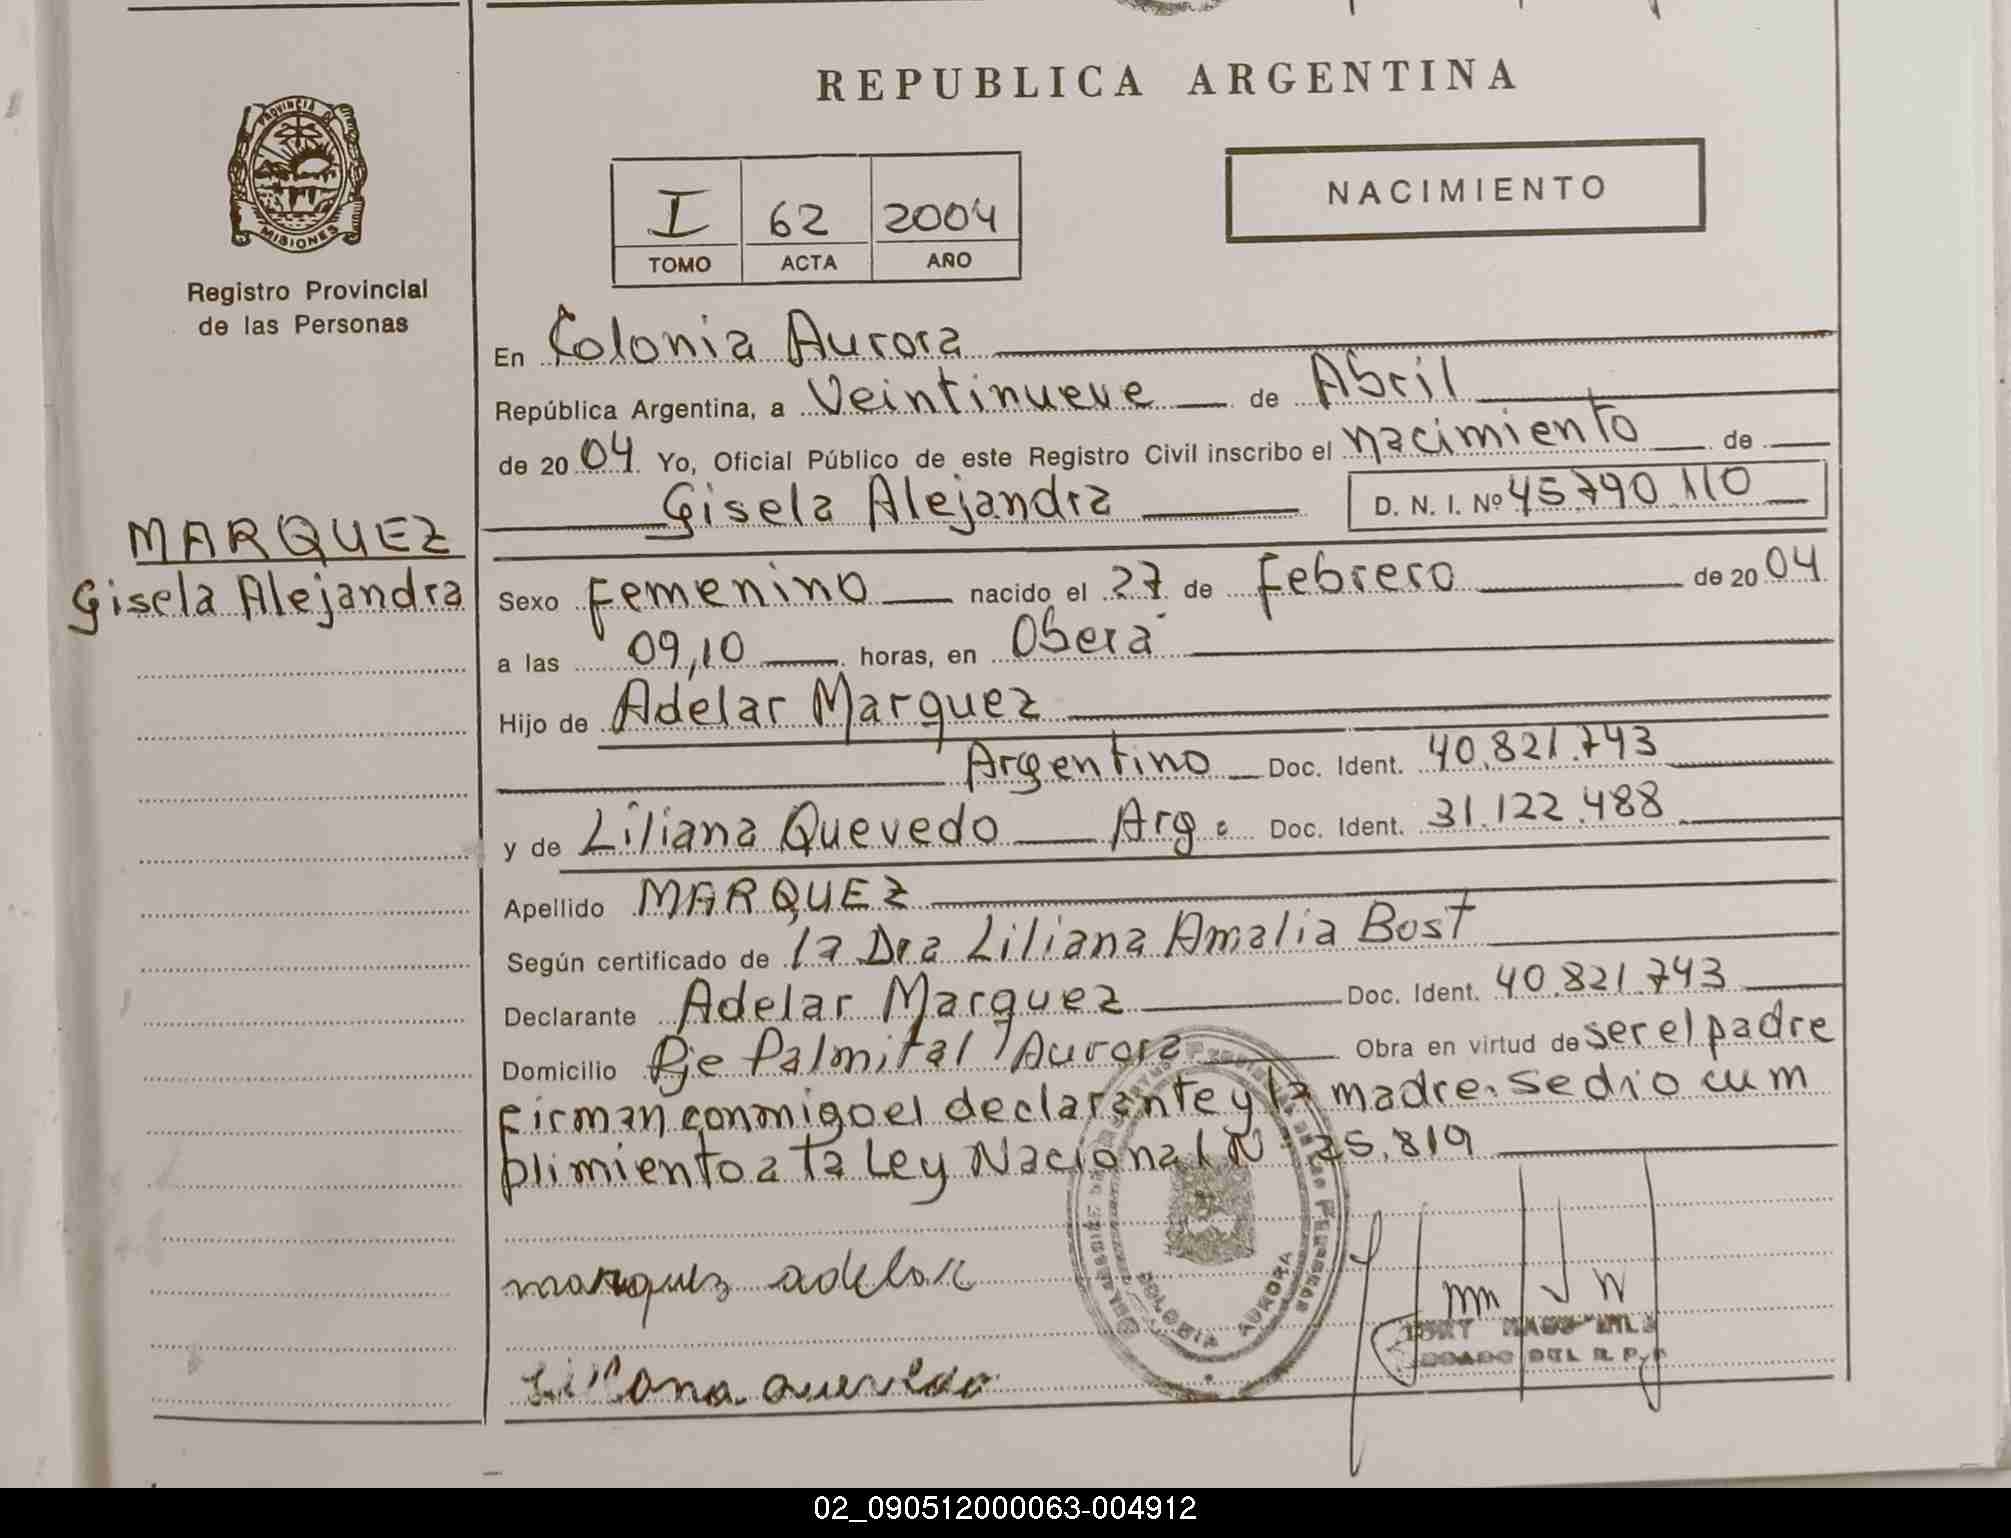 PROVINCIA DE
MISIONES
Registro Provincial
de las Personas
MARQUEZ
Gisela Alejandra
REPUBLICA ARGENTINA
I 62 2004
TOMO ACTA AÑO
NACIMIENTO
En Colonia Aurora
República Argentina, a Veintinueve de Abril
de 2004 Yo, Oficial Público de este Registro Civil inscribo el nacimiento de
Gisela Alejandra D. N. I. Nº 45.790.110
Sexo Femenino nacido el 27 de Febrero de 2004
a las 09,10 horas, en Oberá
Hijo de Adelar Marquez
Argentino Doc. Ident. 40.821.743
y de Liliana Quevedo Arg. Doc. Ident. 31.122.488
Apellido MARQUEZ
Según certificado de la Dra Liliana Amalia Bost
Declarante Adelar Marquez Doc. Ident. 40.821.743
Domicilio Pje Palmital Aurora Obra en virtud de ser el padre
Firman conmigo el declarante y la madre. se dio cum
plimiento a la Ley Nacional Nº 25.819
marquez adelar
COLONIA AURORA
DEL R. P.
Liliana quevedo
02_090512000063-004912